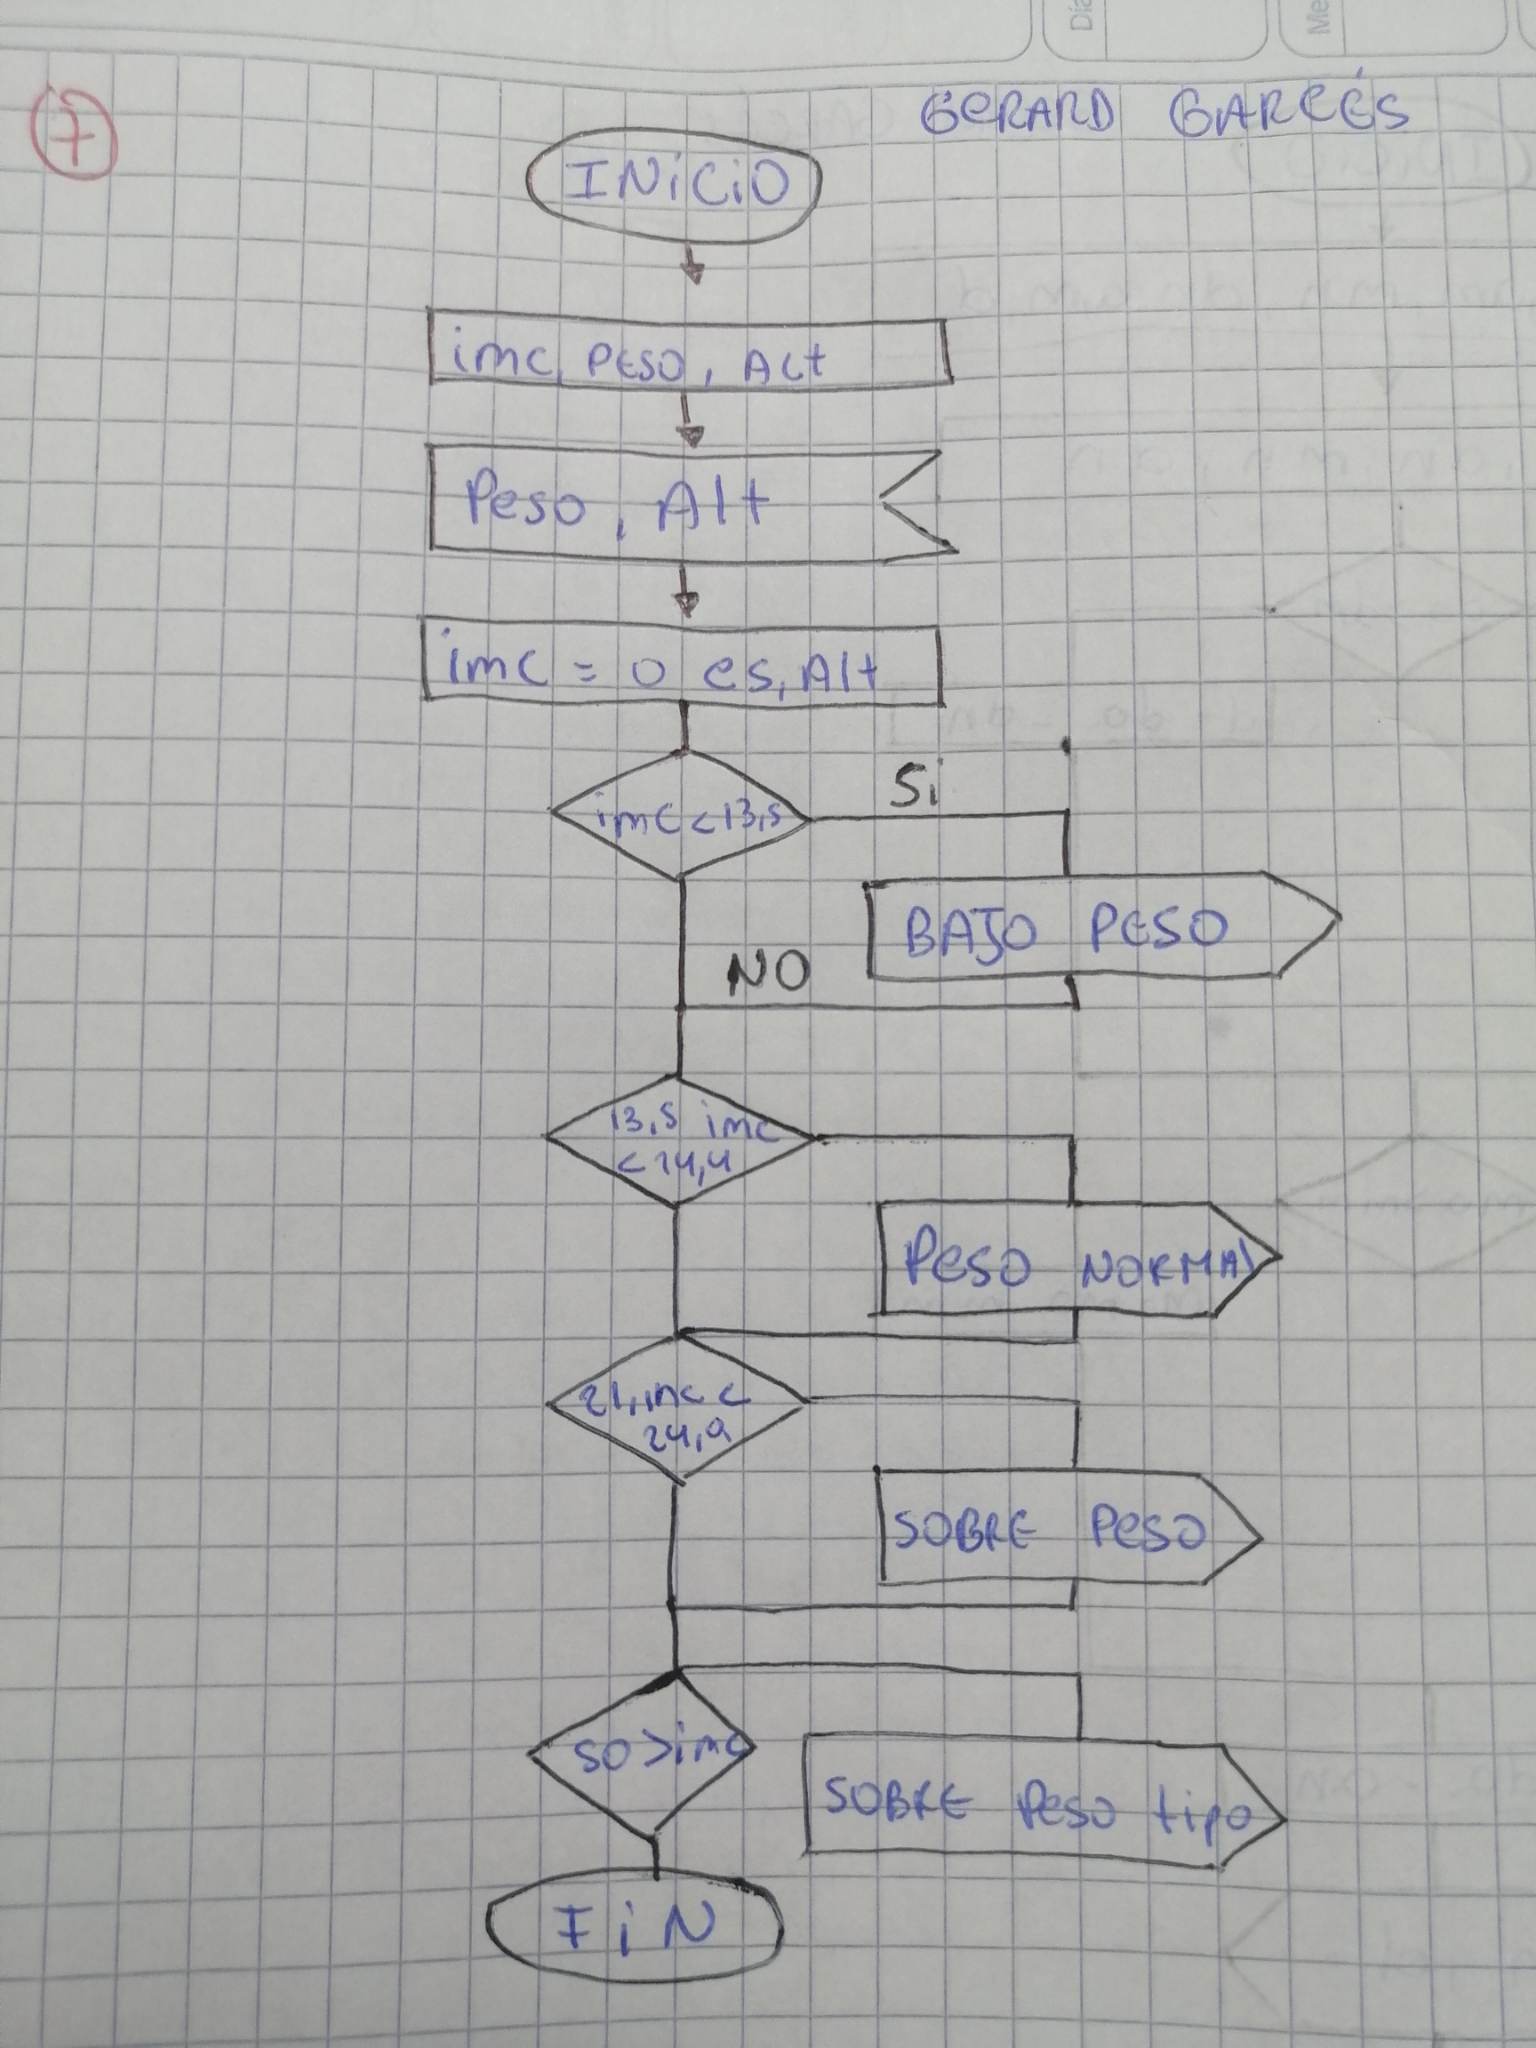 Día
Me
7
GERARD GARCÉS
INiCiO
imc, PESO, ALt
Peso, Alt
imc = 0 es, Alt
imc < 13,5
Si
BAJO PESO
NO
13,5 imc
< 24,4
Peso NORMAl
21, imc <
24,9
SOBRE Peso
50 > imc
SOBRE Peso tipo
FiN